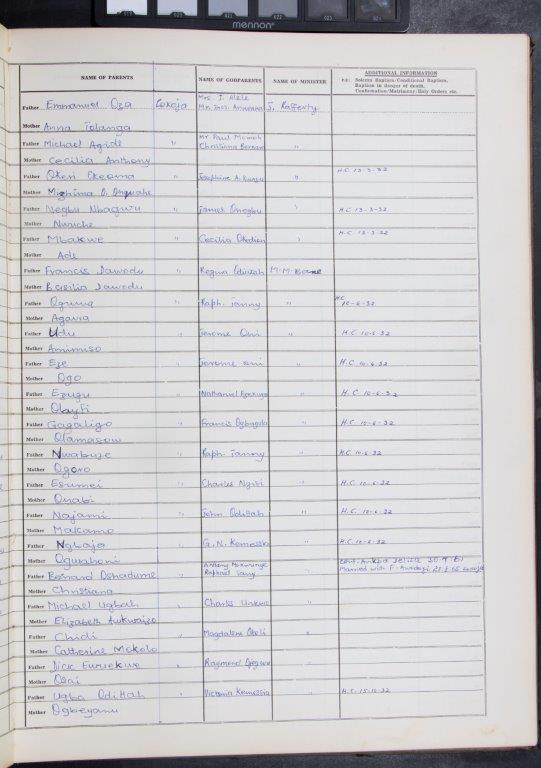 mennon
NAME OF PARENTS NAME OF GODPARENTS NAME OF MINISTER ADDITIONAL INFORMATION
n.b: Solemn Baptism-Conditional Baptism,
Baptism in danger of death,
Confirmation/Matrimony/Holy Orders etc.
Father Emmanuel Oza Lokoja Mrs. J. J. Rafferty
Mother Anna
Father Michael Agide " Mr Paul Christiana "
Mother Cecilia Anthony
Father Okeri Okeoma " Josephine " H.C 13-3-32
Mother
Father Negbu Nbagwu " James Onogbu " H.C 13-3-32
Mother Nwiche
Father Mbakwe " Cecilia " H.C 13-3-32
Mother Ade
Father Francis Jawodu " Regina M.M. Bane
Mother Basilia Jawodu
Father Ogunwa " Raph. Ianny " H.C 10-6-32
Mother Agawa
Father Udu " Jerome Oni " H.C 10-6-32
Mother Amimiso
Father Eze " Jerome Oni " H.C 10-6-32
Mother Ogo
Father Ezugu " Nathaniel " H.C 10-6-32
Mother Olayfi
Father Gagaligo " Francis Ogbugulu " H.C 10-6-32
Mother Olamasow
Father Nwabuze " Raph. Ianny " H.C 10-6-32
Mother Ogoro
Father Esumei " Charles Ngisi " H.C 10-6-32
Mother Onabi
Father Najami " John Odillah " H.C 10-6-32
Mother Makamo
Father Ngbaja " G. N. Kemessia " H.C 10-6-32
Mother Ogwahoni
Father Bernard Oshadume " Anthony Raphael Iany " Conf. Ankpa 30.9.51 Married with F.
Mother Christiana
Father Michael Ugbah " Charles "
Mother Elizabeth
Father Chidi " Magdalene Okoli "
Mother Catherine Mokolo
Father Dick " Raymond "
Mother Osai
Father Ugba Odillah " Victoria Kemessia " H.C 15-10-32
Mother Ogbeyanu